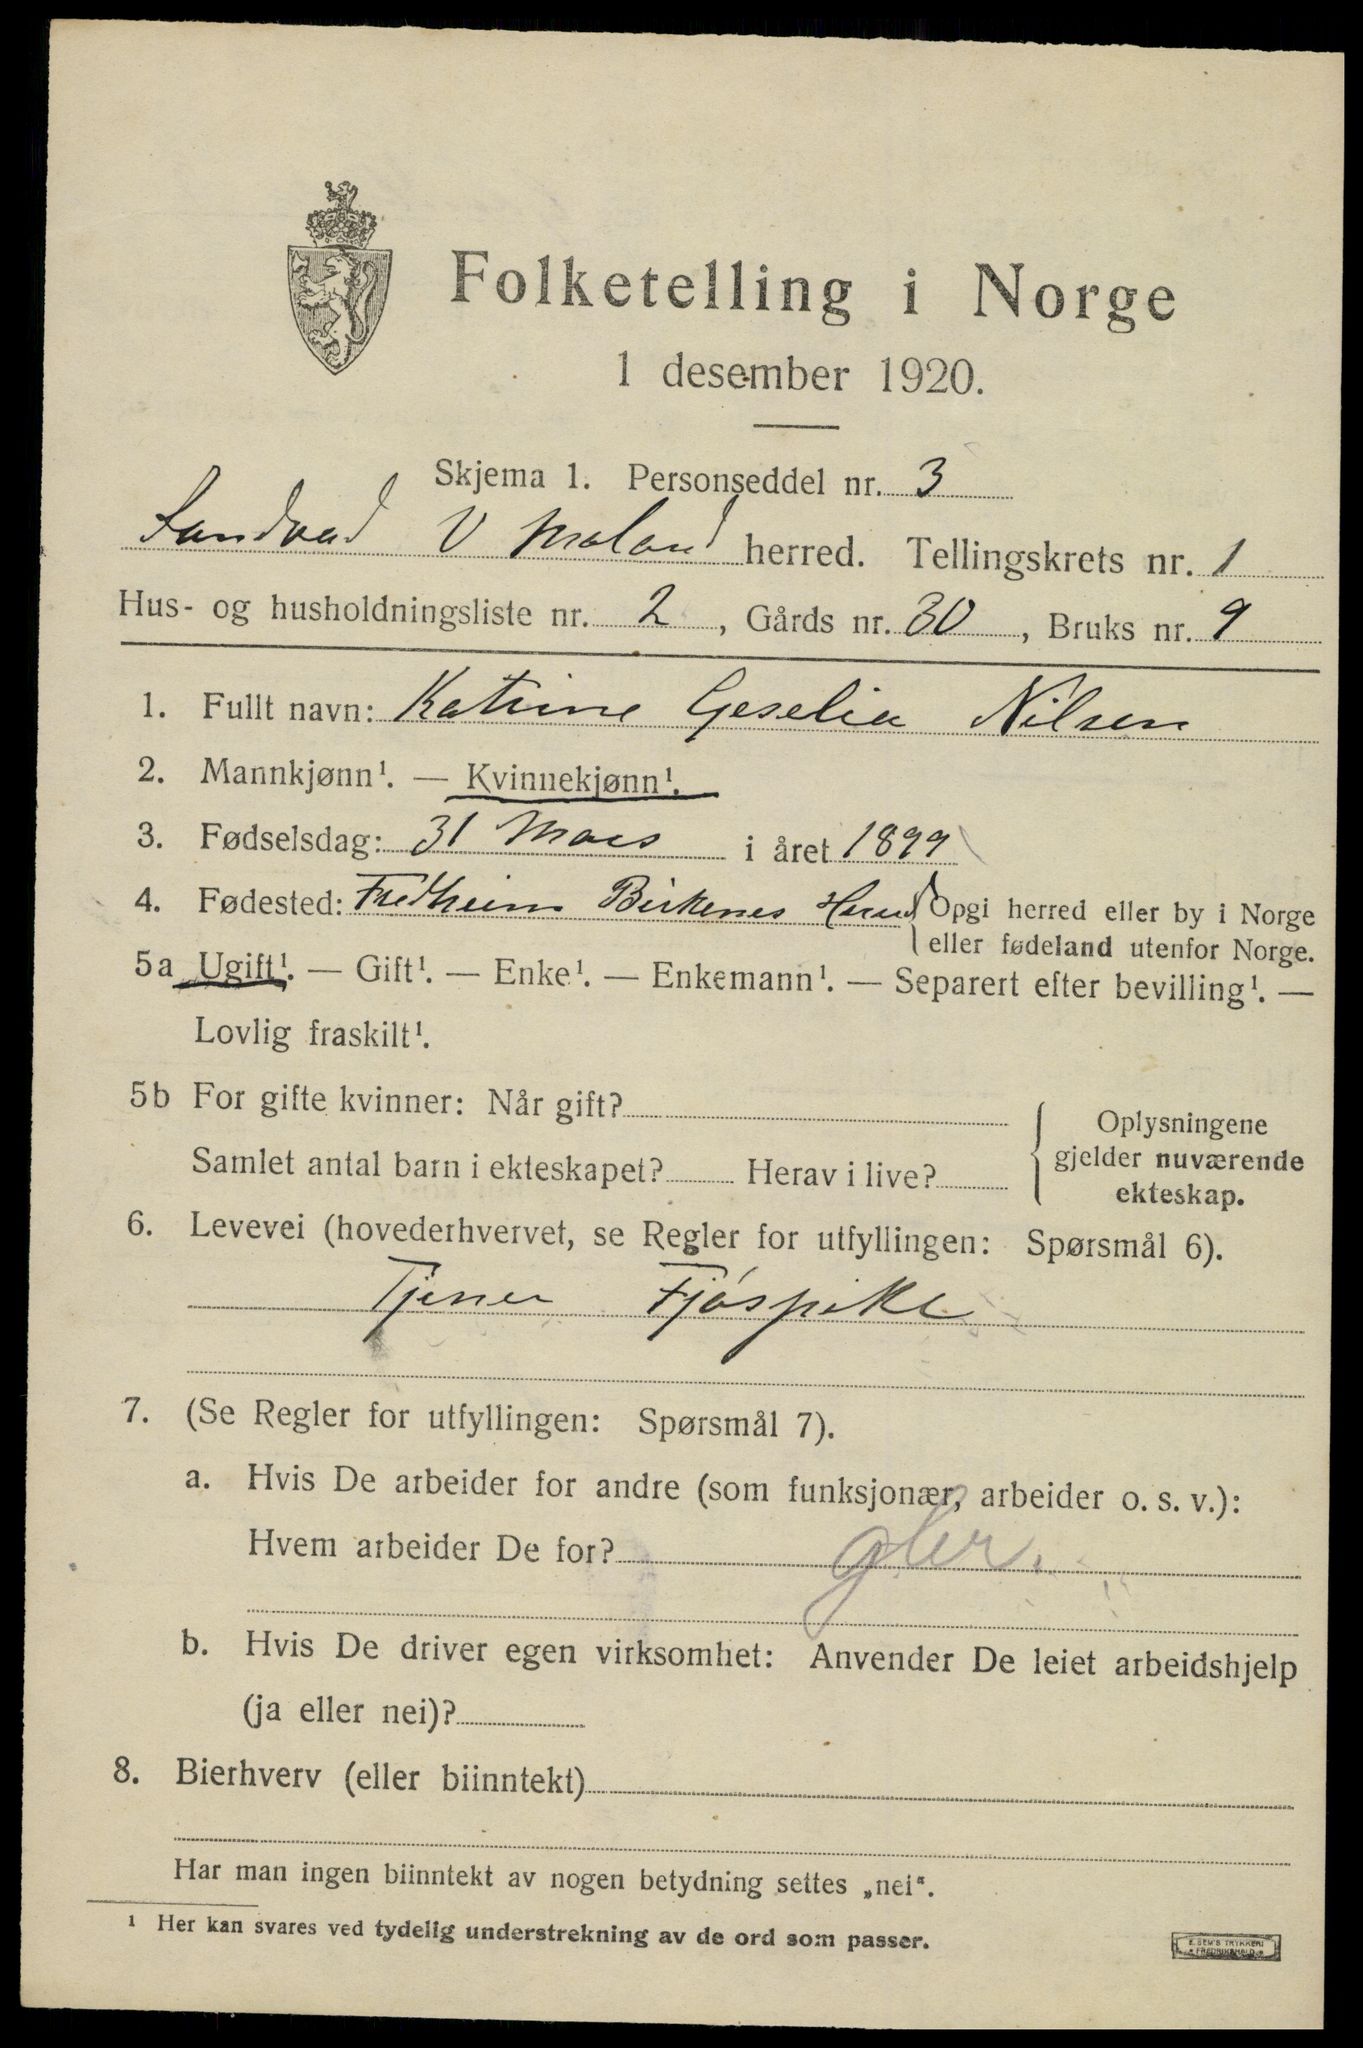 Folketelling i Norge
1 desember 1920.
Skjema 1. Personseddel nr. 3
Sandvad V Moland herred. Tellingskrets nr. 1
Hus- og husholdningsliste nr. 2, Gårds nr. 30, Bruks nr. 9
1. Fullt navn: Katrine Geselia Nilsen
2. Mannkjønn¹. — Kvinnekjønn¹.
3. Fødselsdag: 31 Mars i året 1899
4. Fødested: Fredheim Birkenes Herred { Opgi herred eller by i Norge
eller fødeland utenfor Norge.
5a Ugift¹. — Gift¹. — Enke¹. — Enkemann¹. — Separert efter bevilling¹. —
Lovlig fraskilt¹.
5b For gifte kvinner: Når gift?
Samlet antal barn i ekteskapet? Herav i live?
{ Oplysningene
gjelder nuværende
ekteskap.
6. Levevei (hovederhvervet, se Regler for utfyllingen: Spørsmål 6).
Tjener Fjøspike
7. (Se Regler for utfyllingen: Spørsmål 7).
a. Hvis De arbeider for andre (som funksjonær, arbeider o. s. v.):
Hvem arbeider De for?
b. Hvis De driver egen virksomhet: Anvender De leiet arbeidshjelp
(ja eller nei)?
8. Bierhverv (eller biinntekt)
Har man ingen biinntekt av nogen betydning settes „nei".
¹ Her kan svares ved tydelig understrekning av de ord som passer.
E. SEM'S TRYKKERI
FREDRIKSHALD